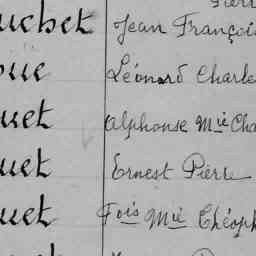 uchet Jean Françoi
ouc Léonard Charle
uet Alphonse Mie Cha
uet Ernest Pierre
uet Fois Mie Théoph